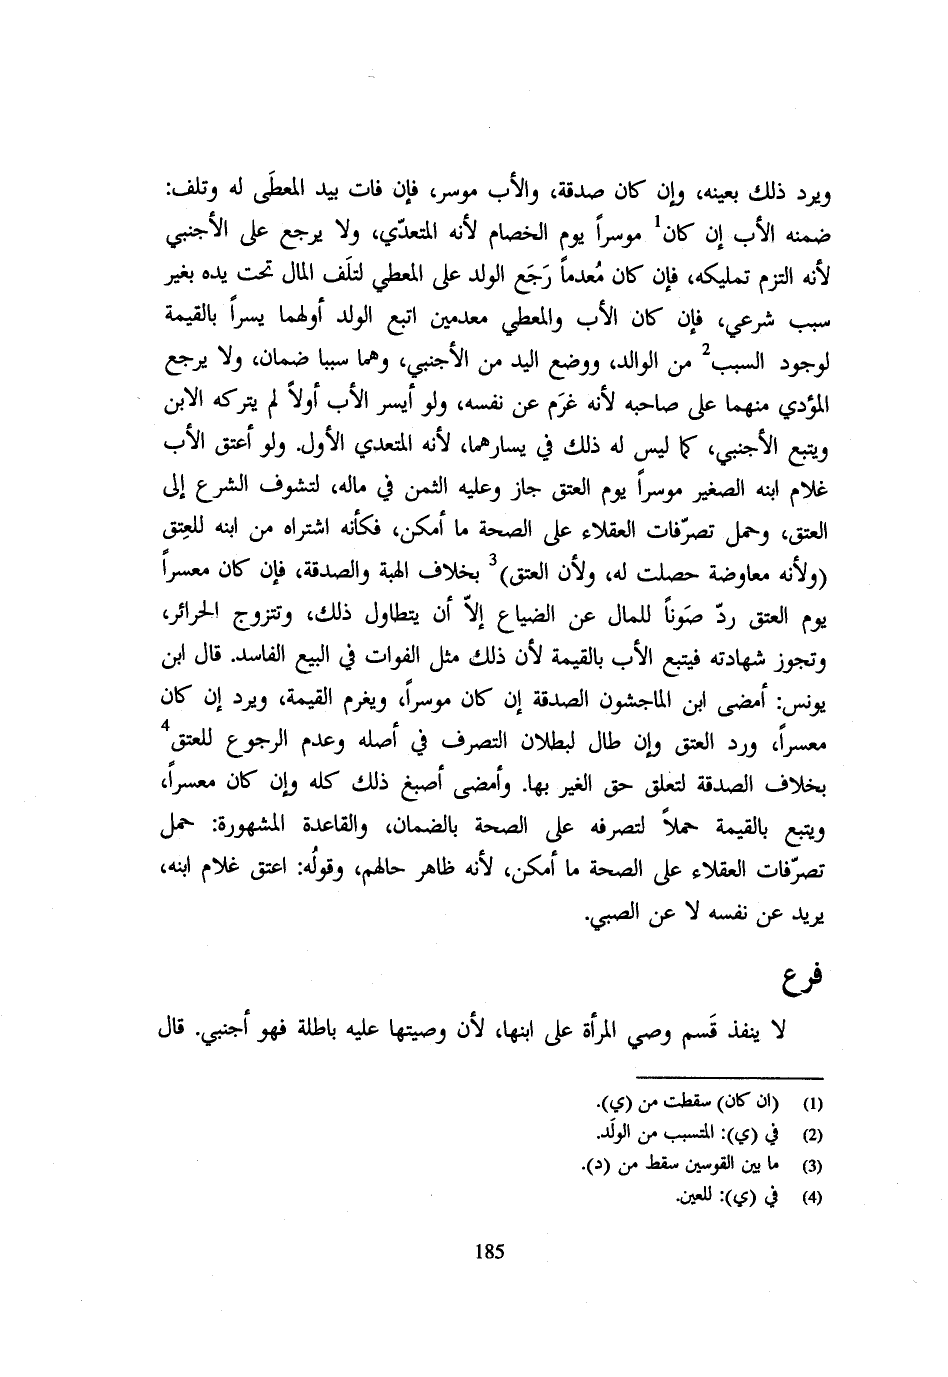 ويرد ذلك بعينه، وإن كان صدقة، والأب موسر، فإن فات بيد المعطَى له وتلف:
ضمنه الأب إن كان1 موسراً يوم الخصام لأنه المتعدّي، ولا يرجع على الأجنبي
لأنه التزم تمليكه، فإن كان مُعدماً رَجَع الولد على المعطي لتلَف المال تحت يده بغير
سبب شرعي، فإن كان الأب والمعطي معدمين اتبع الولد أولهما يسراً بالقيمة
لوجود السبب2 من الوالد، ووضع اليد من الأجنبي، وهما سببا ضمان، ولا يرجع
المؤدي منهما على صاحبه لأنه غرَم عن نفسه، ولو أيسر الأب أولاً لم يتركه الابن
ويتبع الأجنبي، كما ليس له ذلك في يسارهما، لأنه المتعدي الأول. ولو أعتق الأب
غلام ابنه الصغير موسراً يوم العتق جاز وعليه الثمن في ماله، لتشوف الشرع إلى
العتق، وحمل تصرّفات العقلاء على الصحة ما أمكن، فكأنه اشتراه من ابنه للعِتق
(ولأنه معاوضة حصلت له، ولأن العتق)3 بخلاف الهبة والصدقة، فإن كان معسراً
يوم العتق ردّ صَوناً للمال عن الضياع إلاّ أن يتطاول ذلك، وتتزوج الحرائر،
وتجوز شهادته فيتبع الأب بالقيمة لأن ذلك مثل الفوات في البيع الفاسد. قال ابن
يونس: أمضى ابن الماجشون الصدقة إن كان موسراً، ويغرم القيمة، ويرد إن كان
معسراً، ورد العتق وإن طال لبطلان التصرف في أصله وعدم الرجوع للعتق4
بخلاف الصدقة لتعلق حق الغير بها. وأمضى أصبغ ذلك كله وإن كان معسراً،
ويتبع بالقيمة حملاً لتصرفه على الصحة بالضمان، والقاعدة المشهورة: حمل
تصرّفات العقلاء على الصحة ما أمكن، لأنه ظاهر حالهم، وقولُه: اعتق غلام ابنه،
يريد عن نفسه لا عن الصبي.
فرع
لا ينفذ قَسم وصي المرأة على ابنها، لأن وصيتها عليه باطلة فهو أجنبي. قال
(1) (ان كان) سقطت من (ي).
(2) في (ي): المتسبب من الولَد.
(3) ما بين القوسين سقط من (د).
(4) في (ي): للعين.
185